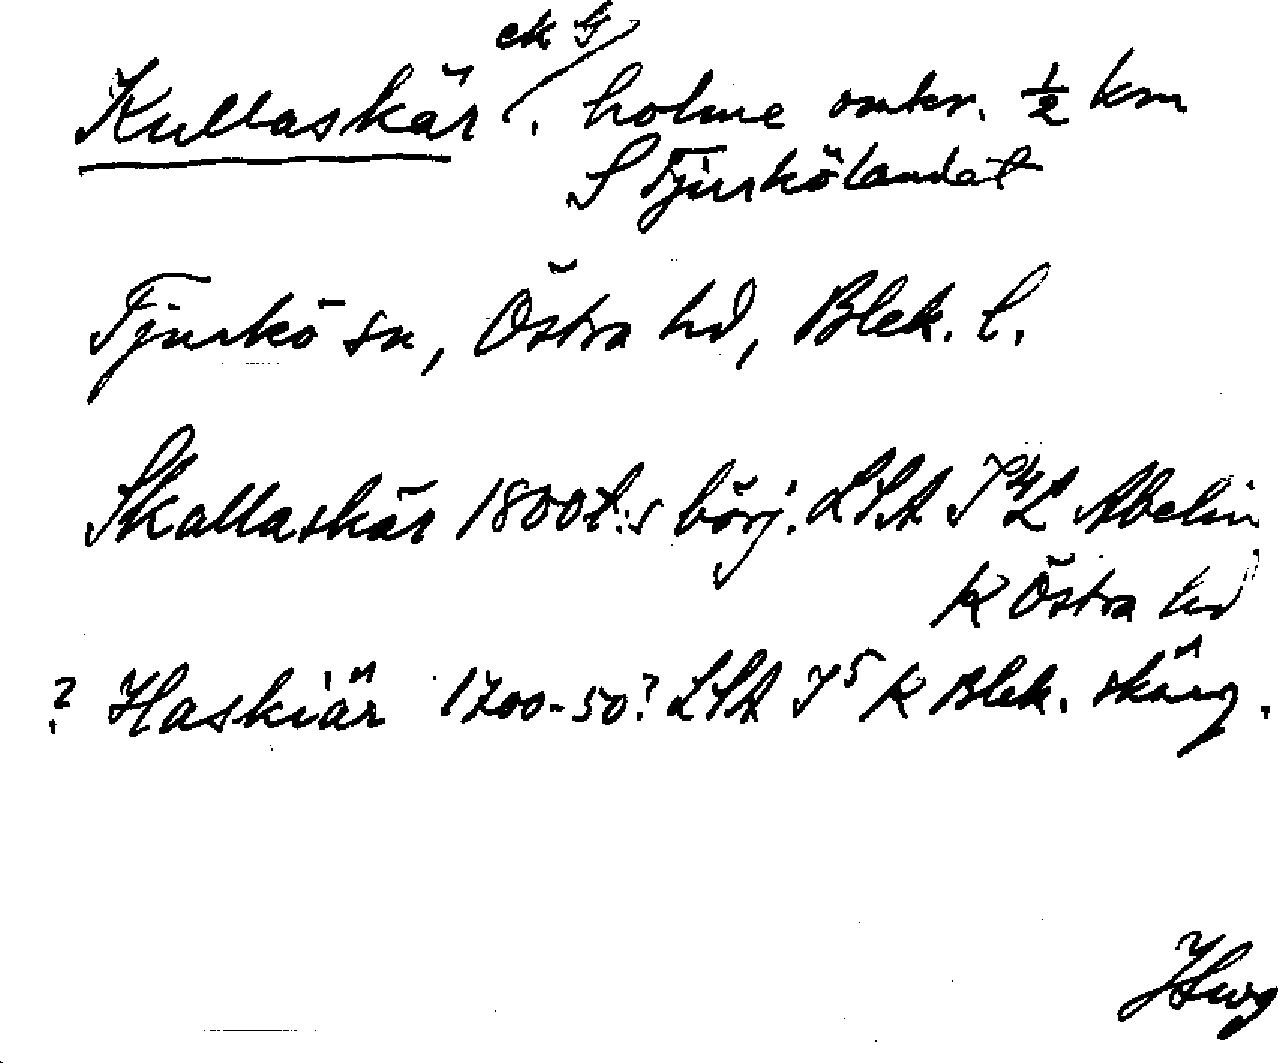 ek G
Kullaskär, holme omkr. ½ km
S Tjurkölandet
Tjurkö sn, Östra hd, Blek. l.
Skallaskär 1800t:s börj. LSA Abelin
K Östra hd
? Haskiär 1700-50? LSA K Blek. skärg.